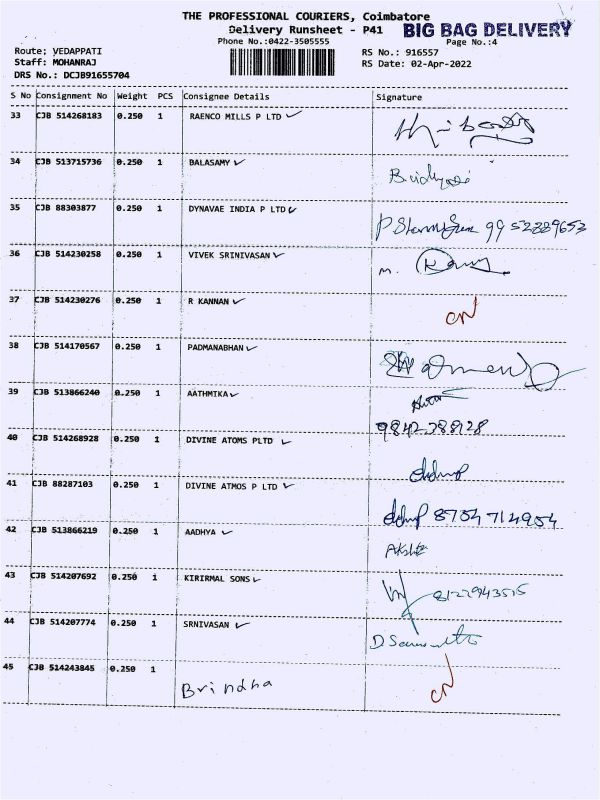 THE PROFESSIONAL COURIERS, Coimbatore
Delivery Runsheet - P41 BIG BAG DELIVERY
Phone No.:0422-3505555 Page No.:4
Route: VEDAPPATI RS No.: 916557
Staff: MOHANRAJ RS Date: 02-Apr-2022
DRS No.: DCJB91655704
S No Consignment No Weight PCS Consignee Details Signature
33 CJB 514268183 0.250 1 RAENCO MILLS P LTD
34 CJB 513715736 0.250 1 BALASAMY
35 CJB 88303877 0.250 1 DYNAVAE INDIA P LTD
36 CJB 514230258 0.250 1 VIVEK SRINIVASAN M.
37 CJB 514230276 0.250 1 R KANNAN
38 CJB 514170567 0.250 1 PADMANABHAN
39 CJB 513866240 0.250 1 AATHMIKA
40 CJB 514268928 0.250 1 DIVINE ATOMS PLTD
41 CJB 88287103 0.250 1 DIVINE ATMOS P LTD
42 CJB 513866219 0.250 1 AADHYA
43 CJB 514207692 0.250 1 KIRIRMAL SONS
44 CJB 514207774 0.250 1 SRNIVASAN
45 CJB 514243845 0.250 1 Brindha